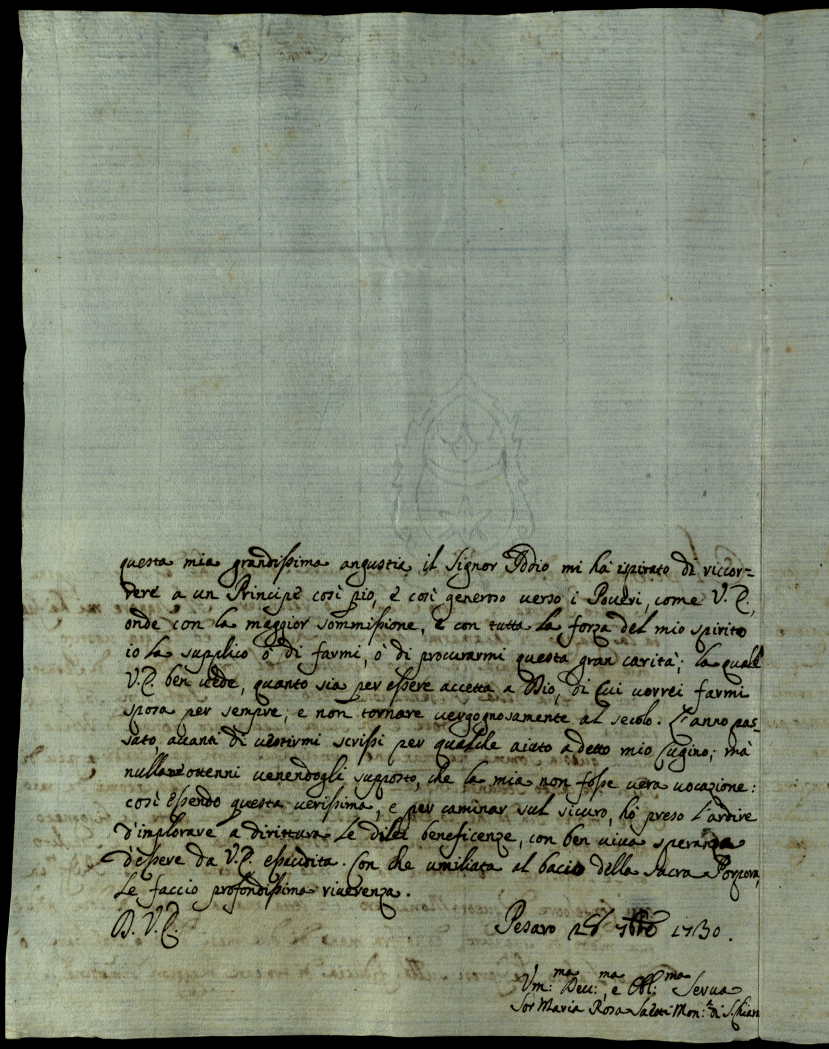 questa mia grandissima angustia il Signor Iddio mi ha ispirato di riccor-
rere a un Principe così pio, e così generoso verso i Poveri, come V. E.,
onde con la maggior sommissione, e con tutta la forza del mio spirito
io la supplico ò di farmi, ò di procurarmi questa gran carità; la quale
V. E. ben vede, quanto sia per essere accetta a Dio, di Cui vorrei farmi
sposa per sempre, e non tornare vergognosamente al secolo. L'anno pas-
sato, avanti di vestirmi scrissi per qualche aiuto a detto mio Cugino; mà
nulla ottenni venendogli supposto, che la mia non fosse vera vocazione:
così essendo questa verissima, e per caminar sul sicuro, hò preso l'ardire
d'implorare a dirittura le di lei beneficenze, con ben viva speranza
d'essere da V. E. essaudita. Con che umiliata al bacio della Sacra Porpora,
Le faccio profondissima riverenza.
D. V. E.
Pesaro 1730.
Vm:ma Dev:ma e Obl:ma Serva
Sor Maria Rosa Mon:a di S. Chiara